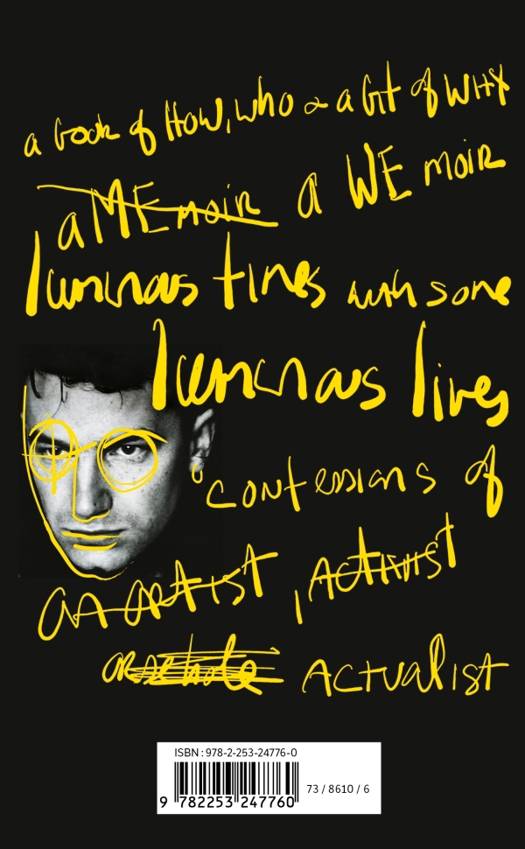 a book of HoW, who & a bit of WHY
a MEmoir a WE moir
luminous times with some
luminous lives
confessions of
an artist, Activist
arsehole Actualist
ISBN : 978-2-253-24776-0
9 782253 247760
73 / 8610 / 6